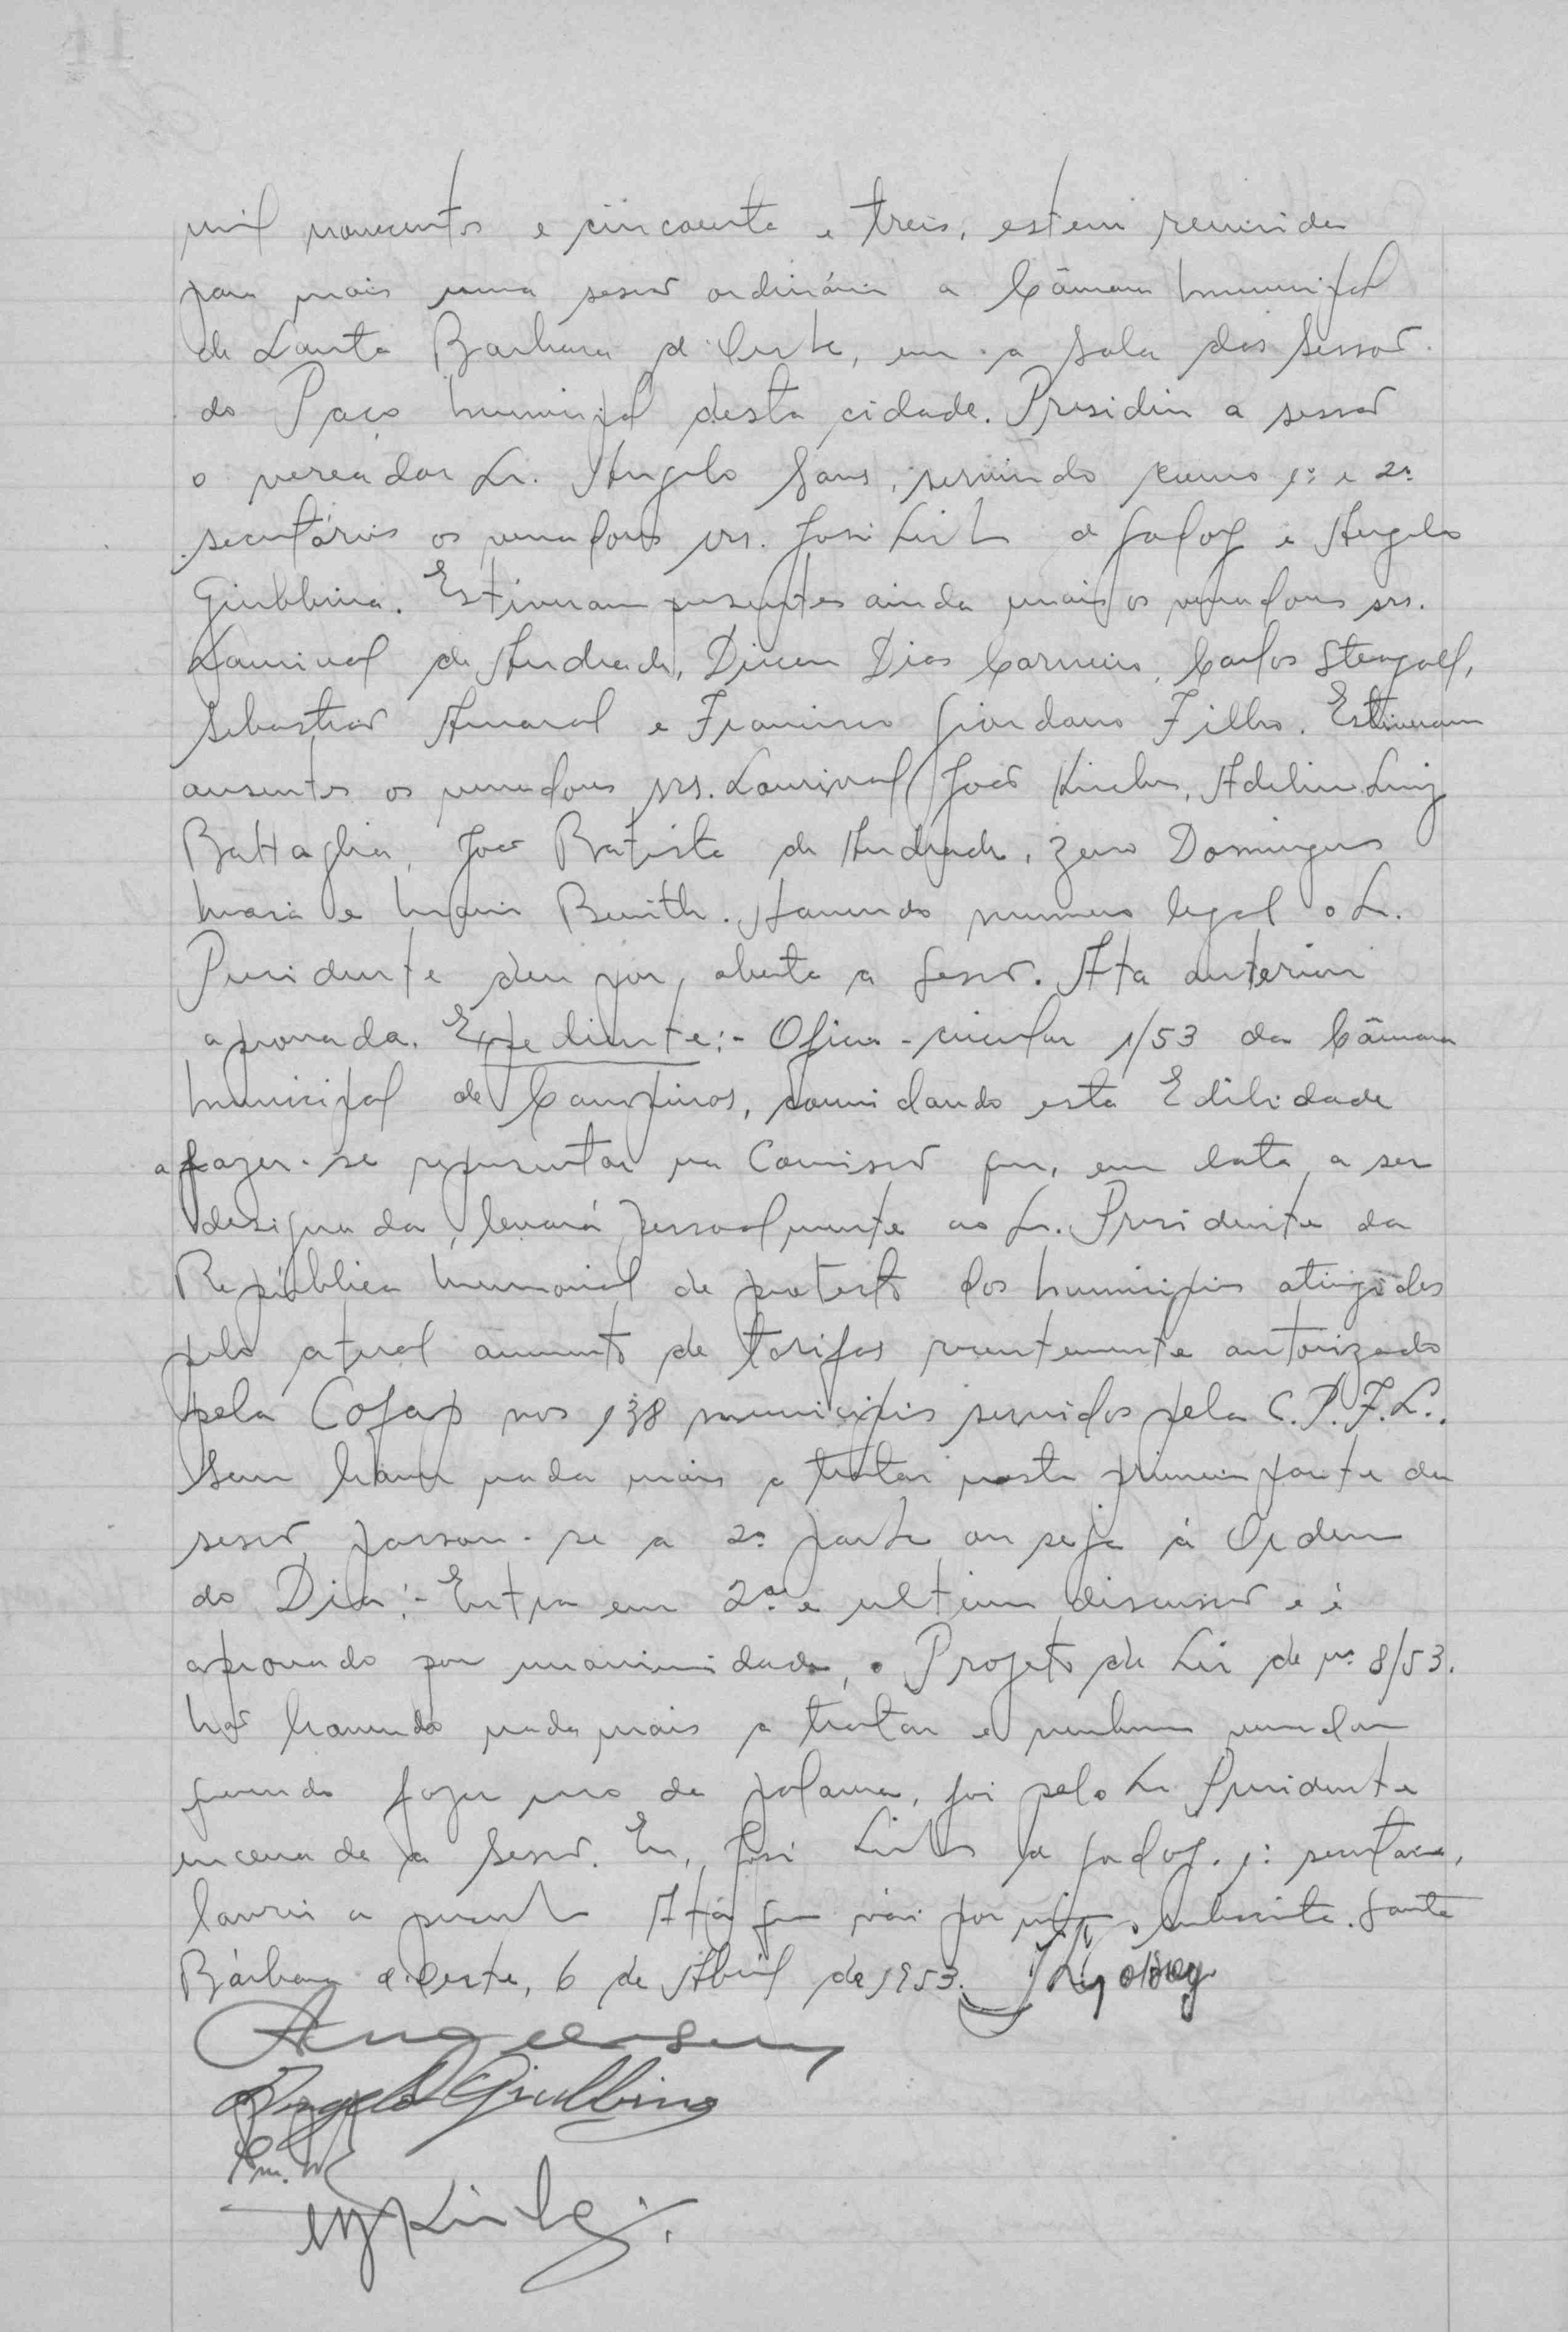 mil novecentos e cincoenta e treis, esteve reunida
para mais uma sessão ordinária a Câmara Municipal
de Santa Barbara d'Oeste, em a Sala das Sessões
do Paço Municipal desta cidade. Presidiu a sessão
o vereador Sr. Angelo Sans, servindo como 1º e 2º
secretários os vereadores srs. José de Godoy e Angelo
Giubbina. Estiveram presentes ainda mais os vereadores srs.
Laurival de Andrade, Dirceu Dias Carneiro, Carlos Steagall,
Sebastião Amaral e Francisco Giordano Filho. Estiveram
ausentes os vereadores srs. Laurival João Kirche, Adelino Luiz
Battaglia, João Batista de Andrade, Zeno Domingues
Maia e Mario Benith. Havendo numero legal o Sr.
Presidente deu por aberta a Sessão. Ata anterior
aprovada. Expediente:- Oficio-circular 1/53 da Câmara
Municipal de Campinas, convidando esta Edilidade
a fazer-se representar na Comissão que, em data a ser
designada, levará pessoalmente ao Sr. Presidente da
República Memorial de protesto dos Municipios atingidos
pelo atual aumento de tarifas recentemente autorizado
pela Cofap nos 138 municipios servidos pela C.P.F.L..
Sem haver nada mais a tratar nesta primeira parte da
sessão, passou-se a 2ª parte ou seja á Ordem
do Dia:- Entra em 2ª e ultima discussão e é
aprovado por unanimidade, o Projeto de Lei de nº 8/53.
Não havendo nada mais a tratar e nenhum vereador
querendo fazer uso da palavra, foi pelo Sr Presidente
encerrada a Sessão. Eu, José de Godoy, 1º secretario,
lavrei a presente Ata que vai por mim subscrita. Santa
Bárbara d'Oeste, 6 de Abril de 1953.
Angelo Sans
Angelo Giubbina